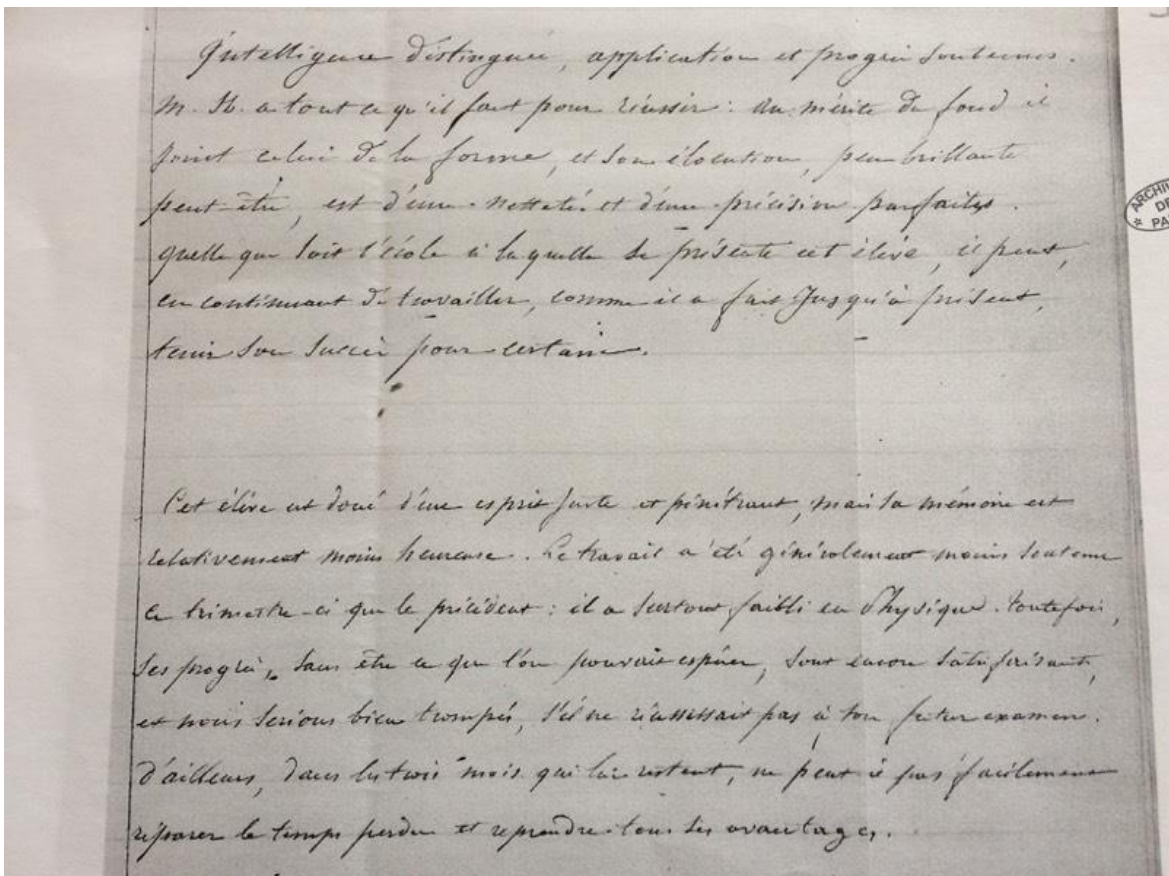 Intelligence distinguée, application et progrès soutenus.
M. H. a tout ce qu'il faut pour réussir : au mérite du fond il
joint celui de la forme, et son élocution, peu brillante
peut-être, est d'une netteté et d'une précision parfaites.
quelle que soit l'école à laquelle se présente cet élève, il peut,
en continuant de travailler, comme il a fait jusqu'à présent,
tenir son succès pour certain.
Cet élève est doué d'un esprit juste et pénétrant, mais sa mémoire est
relativement moins heureuse. Le travail a été généralement moins soutenu
ce trimestre-ci que le précédent : il a surtout faibli en Physique. toutefois,
ses progrès, sans être ce que l'on pouvait espérer, sont encore satisfaisants,
et nous serions bien trompés, s'il ne réussissait pas à son futur examen.
d'ailleurs, dans les trois mois qui lui restent, ne peut il pas facilement
réparer le temps perdu et reprendre tous ses avantages.
ARCHIV
DE
PA